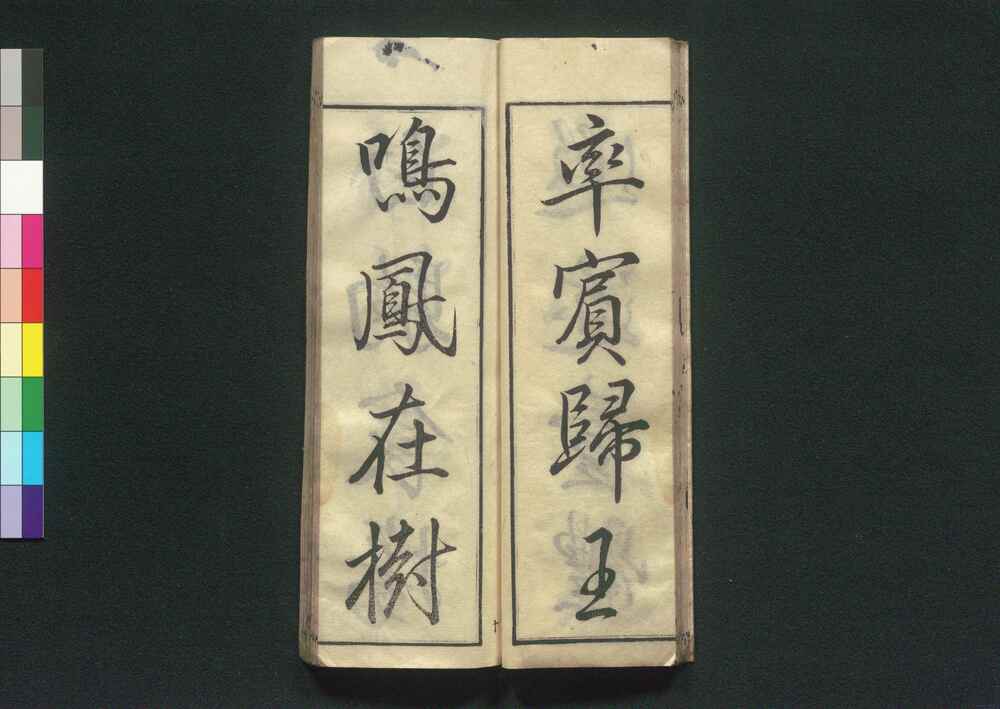 率賓歸王
鳴鳳在樹